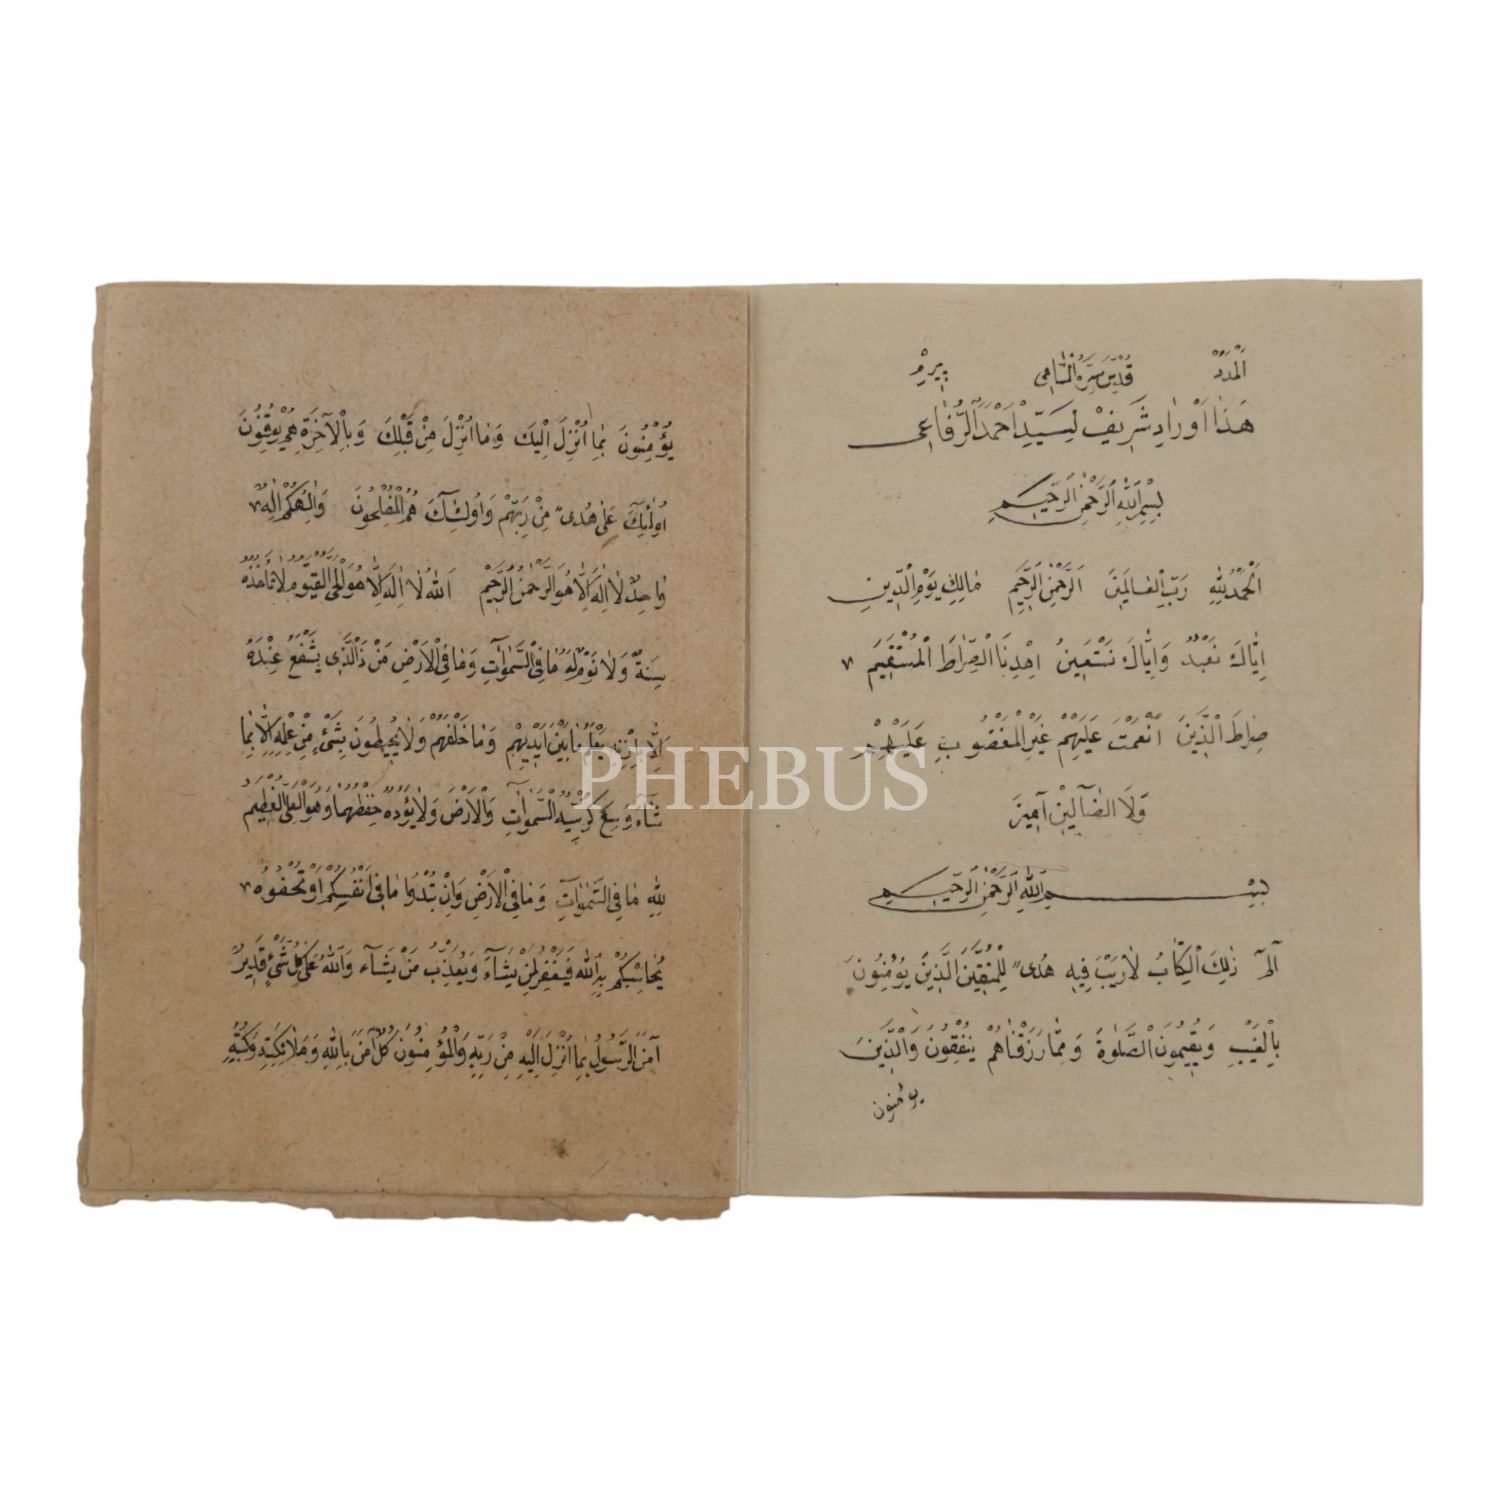 اَلْمَدَدْ قُدِّسَ سِرَّهُ السَّامِى پِيرِمْ
هٰذَا اَوْرَادِ شَرِيفْ لِسَيِّدْ اَحْمَدَ الرُّفَاعِى
بِسْمِ اللهِ الرَّحْمٰنِ الرَّحِيمِ
اَلْحَمْدُ لِلّٰهِ رَبِّ الْعَالَمِينَ اَلرَّحْمٰنِ الرَّحِيمِ مَالِكِ يَوْمِ الدِّينِ
اِيَّاكَ نَعْبُدُ وَاِيَّاكَ نَسْتَعِينُ اِهْدِنَا الصِّرَاطَ الْمُسْتَقِيمَ
صِرَاطَ الَّذِينَ اَنْعَمْتَ عَلَيْهِمْ غَيْرِ الْمَغْضُوبِ عَلَيْهِمْ
وَلَا الضَّآلِّينَ آمِينَ
بِسْمِ اللهِ الرَّحْمٰنِ الرَّحِيمِ
آلٓمٓ ذٰلِكَ الْكِتَابُ لَا رَيْبَ فِيهِ هُدًى لِلْمُتَّقِينَ الَّذِينَ يُؤْمِنُونَ
بِالْغَيْبِ وَيُقِيمُونَ الصَّلٰوةَ وَمِمَّا رَزَقْنَاهُمْ يُنْفِقُونَ وَالَّذِينَ
يؤمنون
يُؤْمِنُونَ بِمَا اُنْزِلَ اِلَيْكَ وَمَا اُنْزِلَ مِنْ قَبْلِكَ وَبِالْآخِرَةِ هُمْ يُوقِنُونَ
اُولٰئِكَ عَلٰى هُدًى مِنْ رَبِّهِمْ وَاُولٰئِكَ هُمُ الْمُفْلِحُونَ وَاِلٰهُكُمْ اِلٰهٌ
وَاحِدٌ لَا اِلٰهَ اِلَّا هُوَ الرَّحْمٰنُ الرَّحِيمُ اَللهُ لَا اِلٰهَ اِلَّا هُوَ الْحَىُّ الْقَيُّومُ لَا تَأْخُذُهُ
سِنَةٌ وَلَا نَوْمٌ لَهُ مَا فِى السَّمٰوَاتِ وَمَا فِى الْاَرْضِ مَنْ ذَا الَّذِى يَشْفَعُ عِنْدَهُ
اِلَّا بِاِذْنِهِ يَعْلَمُ مَا بَيْنَ اَيْدِيهِمْ وَمَا خَلْفَهُمْ وَلَا يُحِيطُونَ بِشَىْءٍ مِنْ عِلْمِهِ اِلَّا بِمَا
شَاءَ وَسِعَ كُرْسِيُّهُ السَّمٰوَاتِ وَالْاَرْضَ وَلَا يَؤُدُهُ حِفْظُهُمَا وَهُوَ الْعَلِىُّ الْعَظِيمُ
لِلّٰهِ مَا فِى السَّمٰوَاتِ وَمَا فِى الْاَرْضِ وَاِنْ تُبْدُوا مَا فِى اَنْفُسِكُمْ اَوْ تُخْفُوهُ
يُحَاسِبْكُمْ بِهِ اللهُ فَيَغْفِرُ لِمَنْ يَشَاءُ وَيُعَذِّبُ مَنْ يَشَاء وَاللهُ عَلٰى كُلِّ شَىْءٍ قَدِيرٌ
آمَنَ الرَّسُولُ بِمَا اُنْزِلَ اِلَيْهِ مِنْ رَبِّهِ وَالْمُؤْمِنُونَ كُلٌّ آمَنَ بِاللهِ وَمَلَائِكَتِهِ وَكُتُبِهِ
PHEBUS